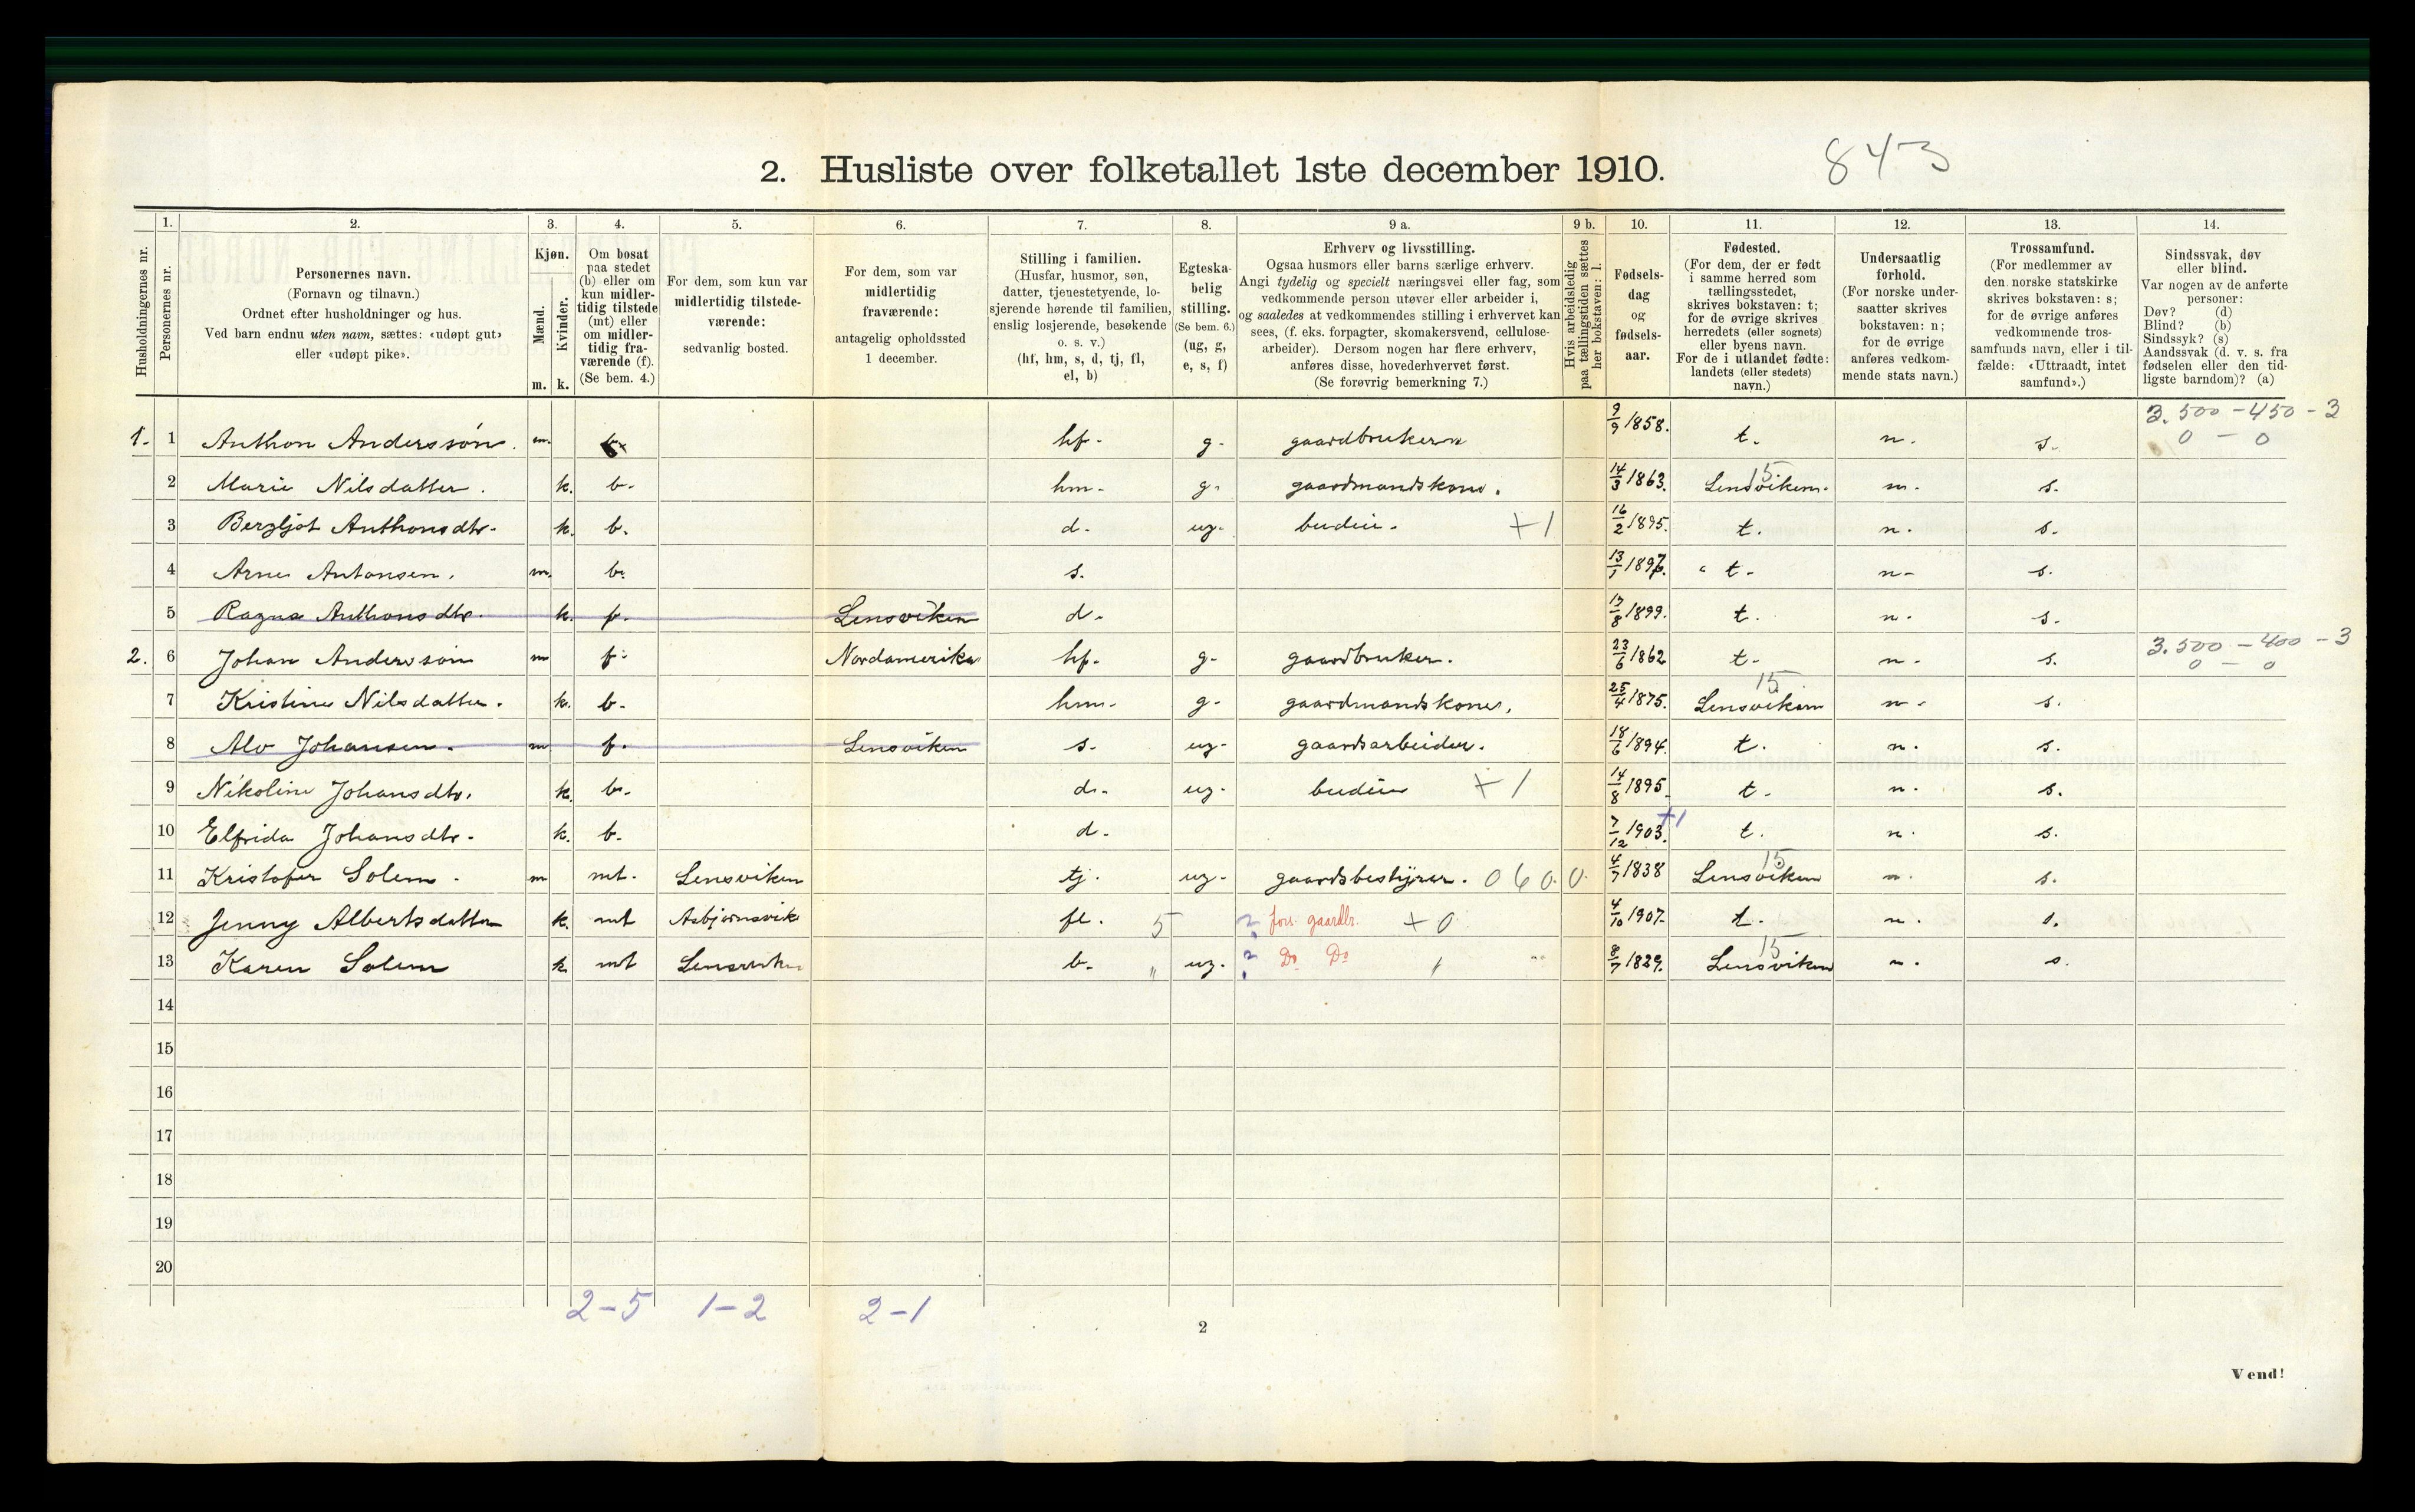 2. Husliste over folketallet 1ste december 1910.
843
Husholdningernes nr.
1. Personernes nr.
2. Personernes navn. (Fornavn og tilnavn.) Ordnet efter husholdninger og hus. Ved barn endnu uten navn, sættes: «udøpt gut» eller «udøpt pike».
3. Kjøn. Mænd. m. Kvinder. k.
4. Om bosat paa stedet (b) eller om kun midlertidig tilstede (mt) eller om midlertidig fraværende (f). (Se bem. 4.)
5. For dem, som kun var midlertidig tilstedeværende: sedvanlig bosted.
6. For dem, som var midlertidig fraværende: antagelig opholdssted 1 december.
7. Stilling i familien. (Husfar, husmor, søn, datter, tjenestetyende, losjerende hørende til familien, enslig losjerende, besøkende o. s. v.) (hf, hm, s, d, tj, fl, el, b)
8. Egteskabelig stilling. (Se bem. 6.) (ug, g, e, s, f)
9 a. Erhverv og livsstilling. Ogsaa husmors eller barns særlige erhverv. Angi tydelig og specielt næringsvei eller fag, som vedkommende person utøver eller arbeider i, og saaledes at vedkommendes stilling i erhvervet kan sees, (f. eks. forpagter, skomakersvend, cellulosearbeider). Dersom nogen har flere erhverv, anføres disse, hovederhvervet først. (Se forøvrig bemerkning 7.)
9 b. Hvis arbeidsledig paa tællingstiden sættes her bokstaven: l.
10. Fødselsdag og fødselsaar.
11. Fødested. (For dem, der er født i samme herred som tællingsstedet, skrives bokstaven: t; for de øvrige skrives herredets (eller sognets) eller byens navn. For de i utlandet fødte: landets (eller stedets) navn.)
12. Undersaatlig forhold. (For norske undersaatter skrives bokstaven: n; for de øvrige anføres vedkommende stats navn.)
13. Trossamfund. (For medlemmer av den norske statskirke skrives bokstaven: s; for de øvrige anføres vedkommende trossamfunds navn, eller i tilfælde: «Uttraadt, intet samfund».)
14. Sindssvak, døv eller blind. Var nogen av de anførte personer: Døv? (d) Blind? (b) Sindssyk? (s) Aandssvak (d. v. s. fra fødselen eller den tidligste barndom)? (a)
1. 1 Anthon Anderssøn. m. b. hf. g. gaardbruker 9/9 1858. t. n. s. 3.500 - 450 - 3 0 - 0
2 Marie Nilsdatter. k. b. hm. g. gaardmandskone. 14/3 1863. Lensviken. 15 n. s.
3 Bergljot Anthonsdtr. k. b. d. ug. budeie. +1 16/2 1895. t. n. s.
4 Arne Antonsen. m. b. s. 13/1 1897. t. n. s.
5 Ragna Anthonsdtr. k. f. Lensviken d. 17/8 1899. t. n. s.
2. 6 Johan Anderssøn m f. Nordamerika hf. g. gaardbruker. 23/6 1862 t. n. s. 3.500 - 400 - 3 0 - 0
7 Kristine Nilsdatter. k. b. hm. g. gaardmandskone. 25/4 1875. Lensviken 15 n. s.
8 Alv Johansen. m f. Lensviken s. ug. gaardsarbeider. 18/6 1894. t. n. s.
9 Nikoline Johansdtr. k. b. d. ug. budeie +1 14/8 1895. t. n. s.
10 Elfrida Johansdtr. k. b. d. 7/12 1903. +1 t. n. s.
11 Kristofer Solem. m mt. Lensviken tj. ug. gaardsbestyrer. 0600 4/7 1838 Lensviken 15 n. s.
12 Jenny Albertsdatter k. mt Asbjørnsvik fl. 5 2 fors. gaardbr. +0 4/10 1907. t. n. s.
13 Karen Solem k. mt Lensviken b. " ug. 2 Do Do 8/7 1829. Lensviken 15 n. s.
14
15
16
17
18
19
20
2-5 1-2 2-1
2
Vend!